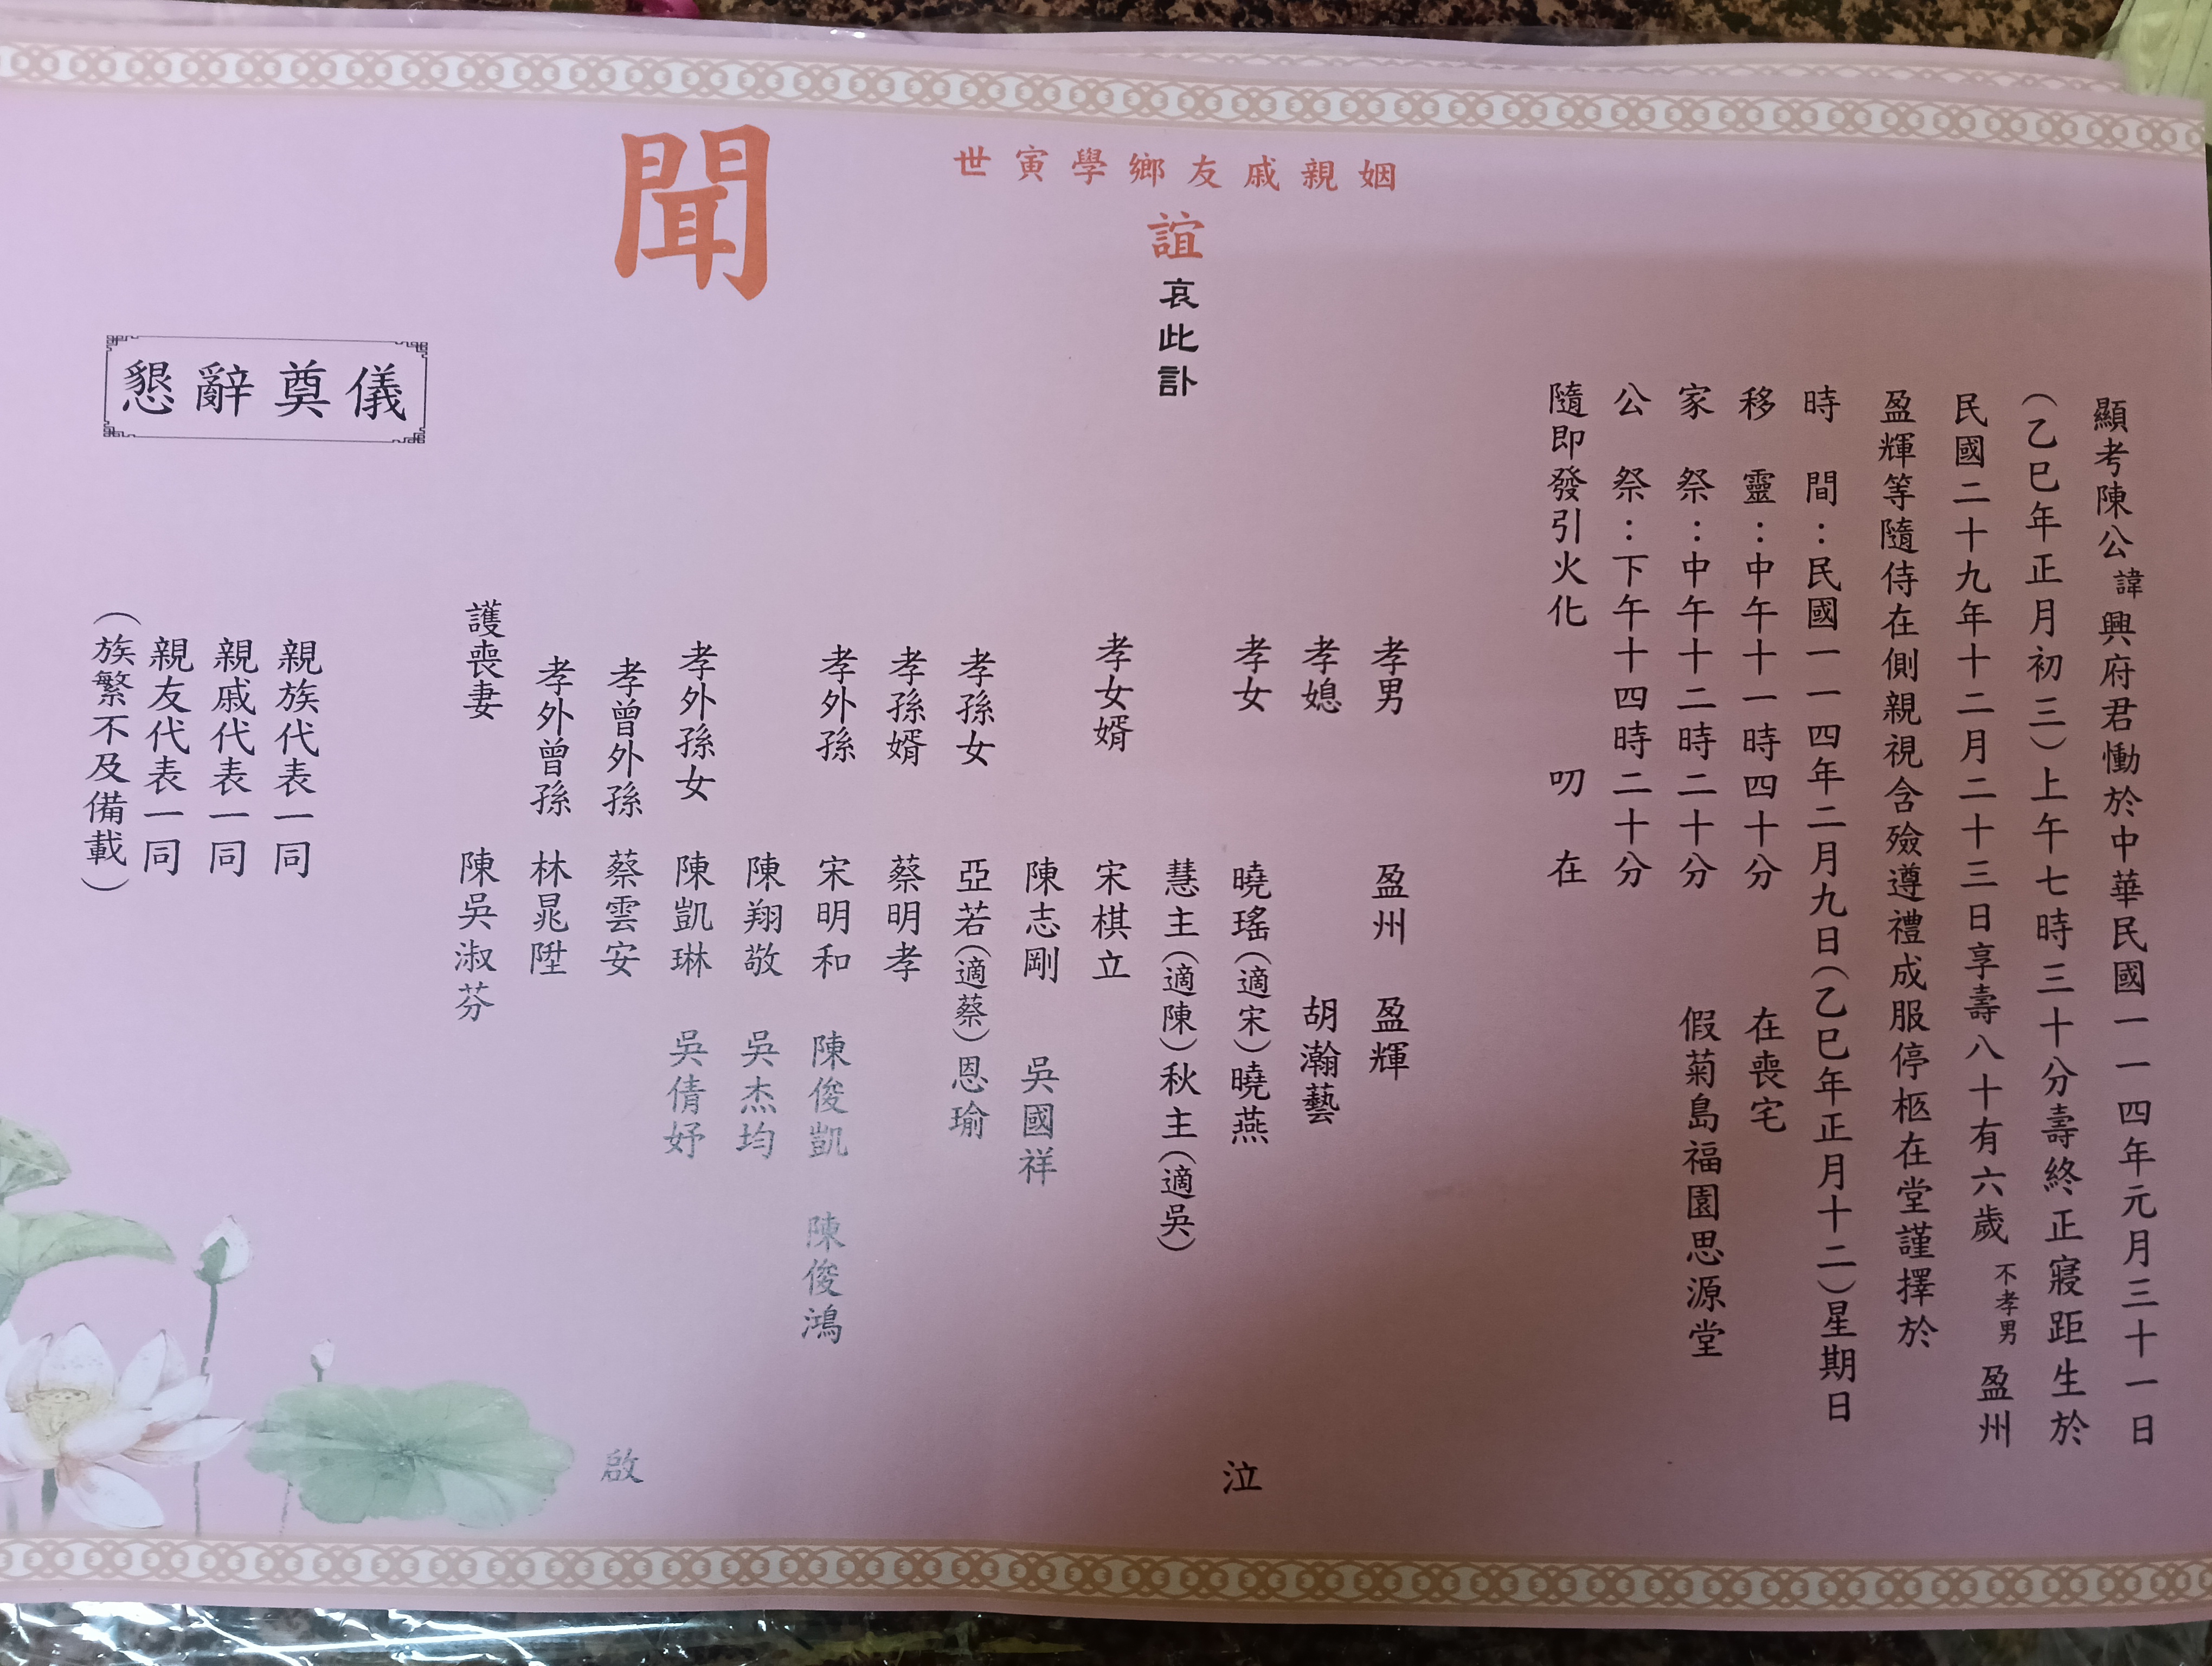 顯考陳公諱興府君慟於中華民國一一四年元月三十一日
(乙巳年正月初三)上午七時三十分壽終正寢距生於
民國二十九年十二月二十三日享壽八十有六歲 不孝男 盈州
盈輝等隨侍在側親視含殮遵禮成服停柩在堂謹擇於
時間:民國一一四年二月九日(乙巳年正月十二)星期日
移靈:中午十一時四十分 在喪宅
家祭:中午十二時二十分 假菊島福園思源堂
公祭:下午十四時二十分
隨即發引火化 叨在
姻親戚友鄉學寅世
誼 哀此訃
聞
孝男 盈州 盈輝
孝媳 胡瀚藝
孝女 曉瑤(適宋)曉燕
慧主(適陳)秋主(適吳)
孝女婿 宋棋立
陳志剛 吳國祥
孝孫女 亞若(適蔡)恩瑜
孝孫婿 蔡明孝
孝外孫 宋明和 陳俊凱 陳俊鴻
陳翔敬 吳杰均
孝外孫女 陳凱琳 吳倩妤
孝曾外孫 蔡雲安
孝外曾孫 林晁陞
護喪妻 陳吳淑芬
泣
啟
親族代表一同
親戚代表一同
親友代表一同
(族繁不及備載)
懇辭奠儀